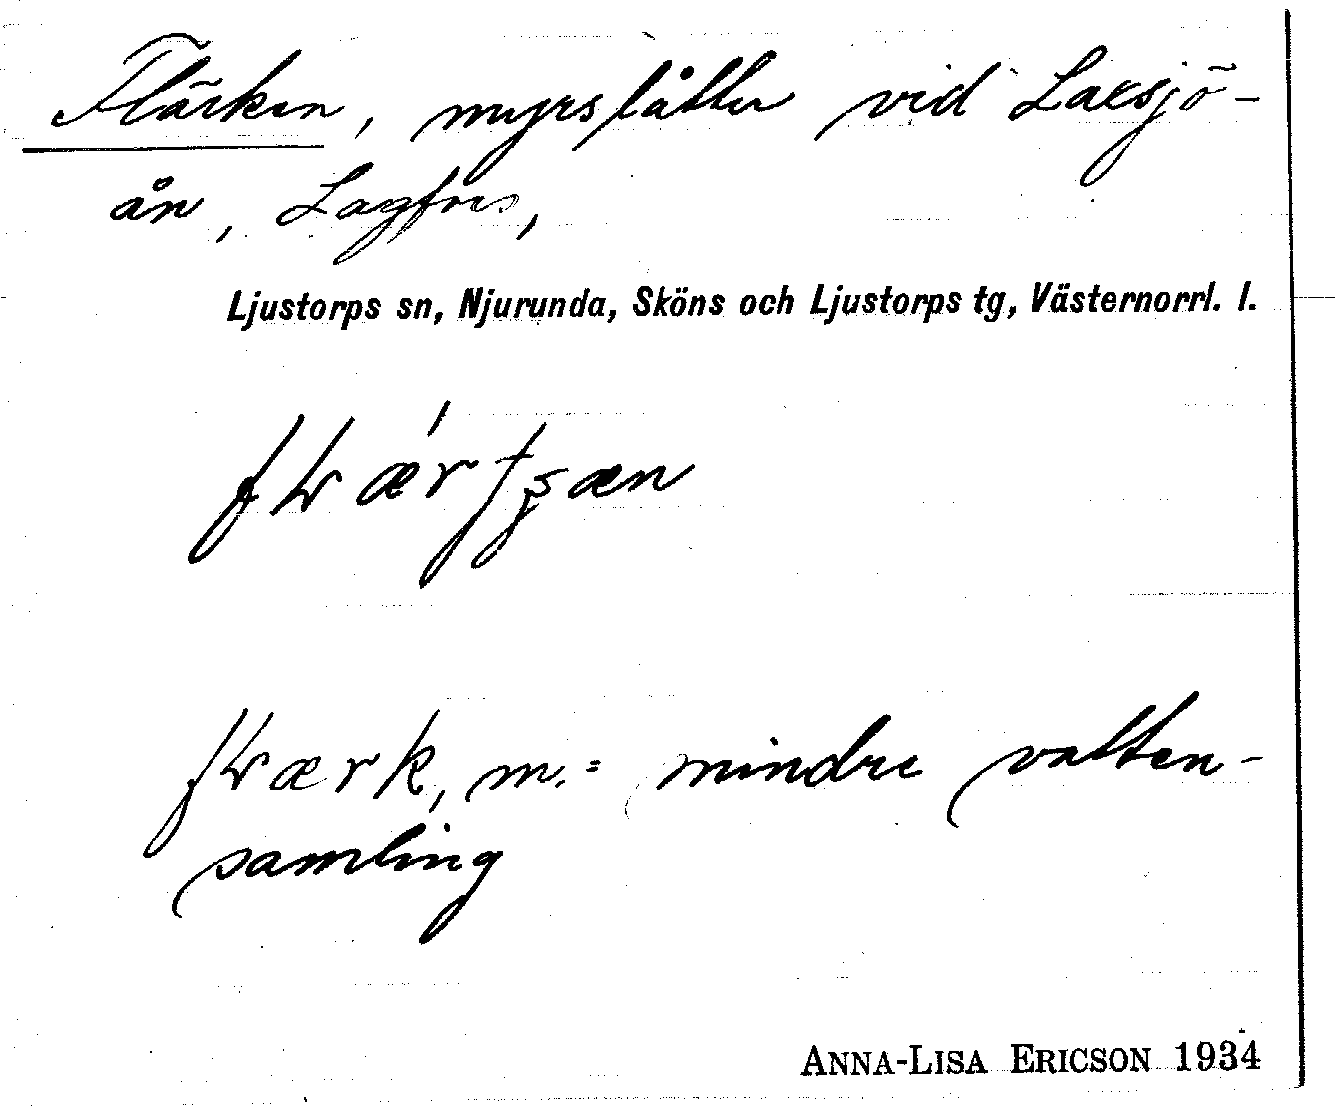 Flärken, myrslåtter vid Laxsjö-
ån, Lagfors,
Ljustorps sn, Njurunda, Sköns och Ljustorps tg, Västernorrl. l.
flærk, m. = mindre vatten-
samling
ANNA-LISA ERICSON 1934